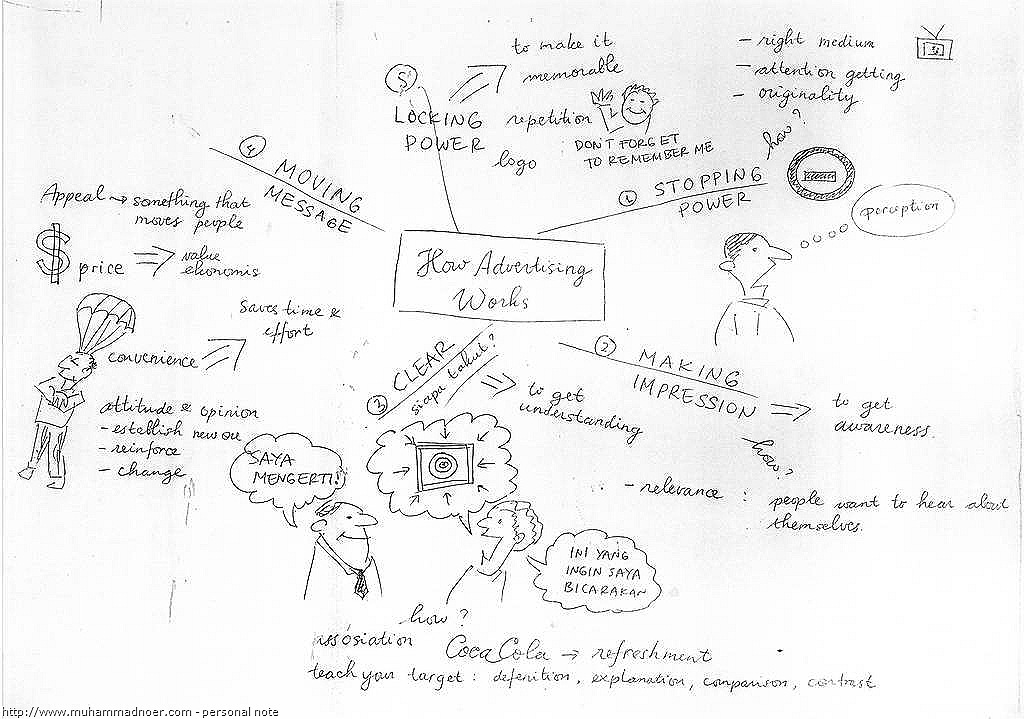 How Advertising
Works
1 STOPPING
POWER
how?
- right medium
- attention getting
- originality
perception
2 MAKING
IMPRESSION
to get
awareness.
how?
- relevance : people want to hear about
themselves.
3 CLEAR
siapa takut?
to get
understanding
SAYA
MENGERTI!
INI YANG
INGIN SAYA
BICARAKAN
how?
assosiation CocaCola → refreshment
teach your target : defenition, explanation, comparison, contrast
4 MOVING
MESSAGE
Appeal → something that
moves people
$ price ⇒ value
ekonomis
convenience ⇒ saves time &
effort
attitude & opinion
- establish new one
- reinforce
- change
5 LOCKING
POWER
to make it
memorable
repetition
logo
DON'T FORGET
TO REMEMBER ME
http://www.muhammadnoer.com - personal note